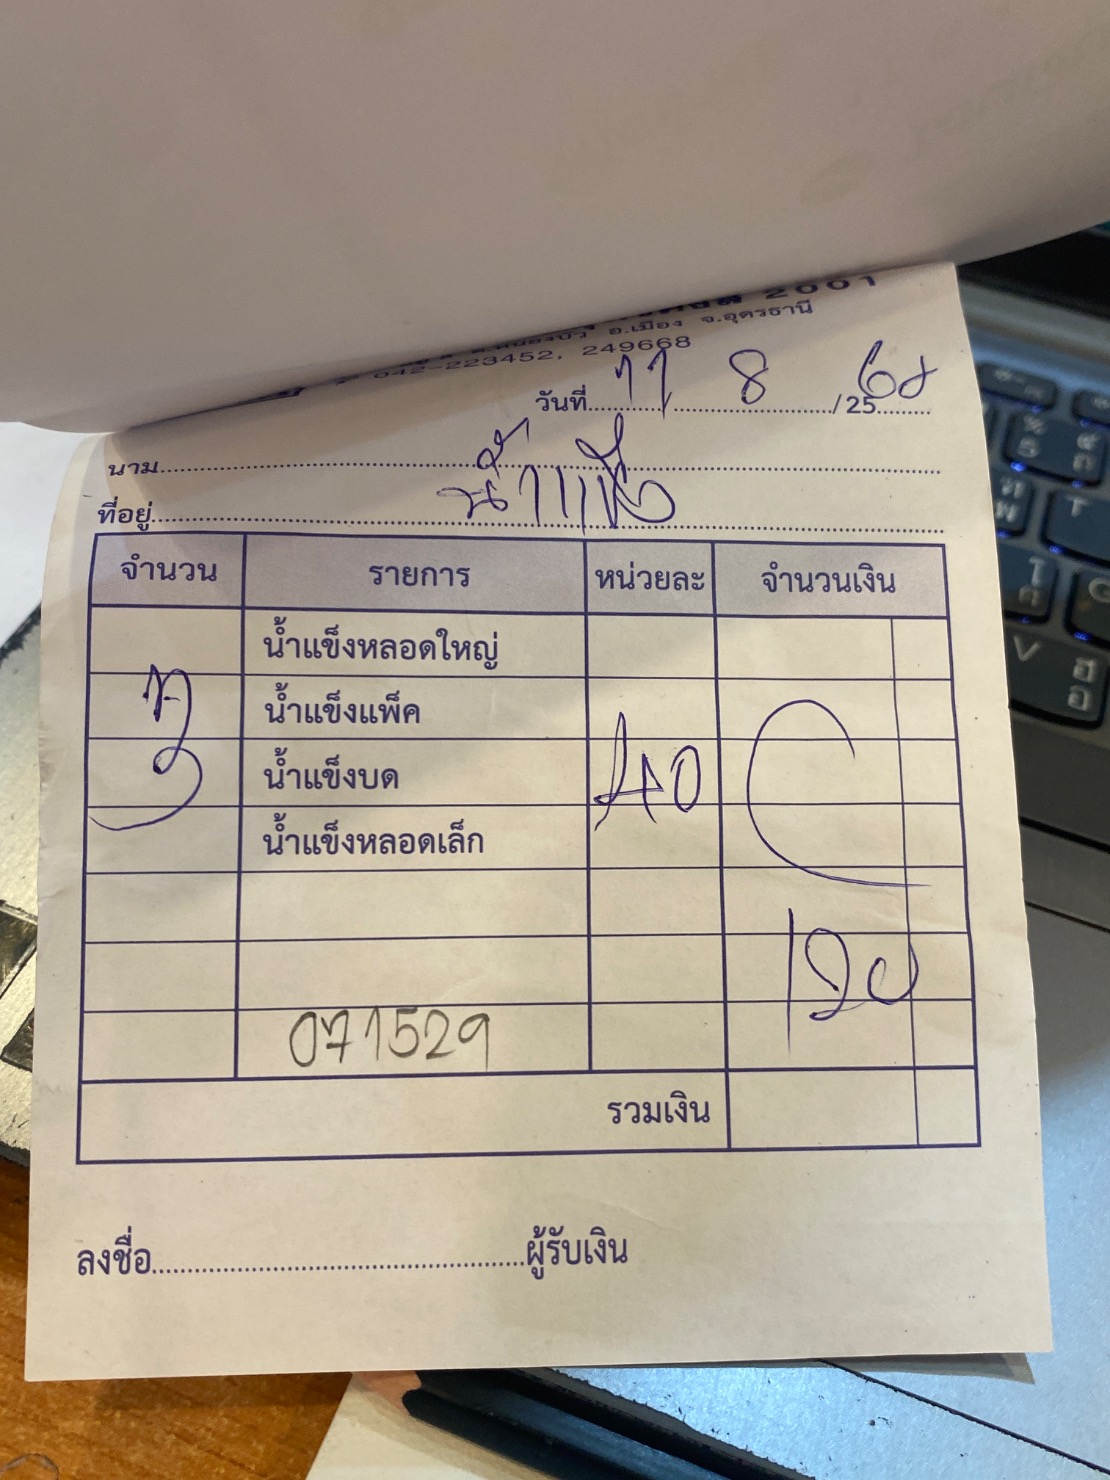 2001
อ.เมือง จ.อุดรธานี
042-223452, 249668
วันที่ 11 8 /25 68
นาม น้ำแข็ง
ที่อยู่
จำนวน รายการ หน่วยละ จำนวนเงิน
น้ำแข็งหลอดใหญ่
3 น้ำแข็งแพ็ค
น้ำแข็งบด 40
น้ำแข็งหลอดเล็ก
120
071529
รวมเงิน
ลงชื่อ ผู้รับเงิน